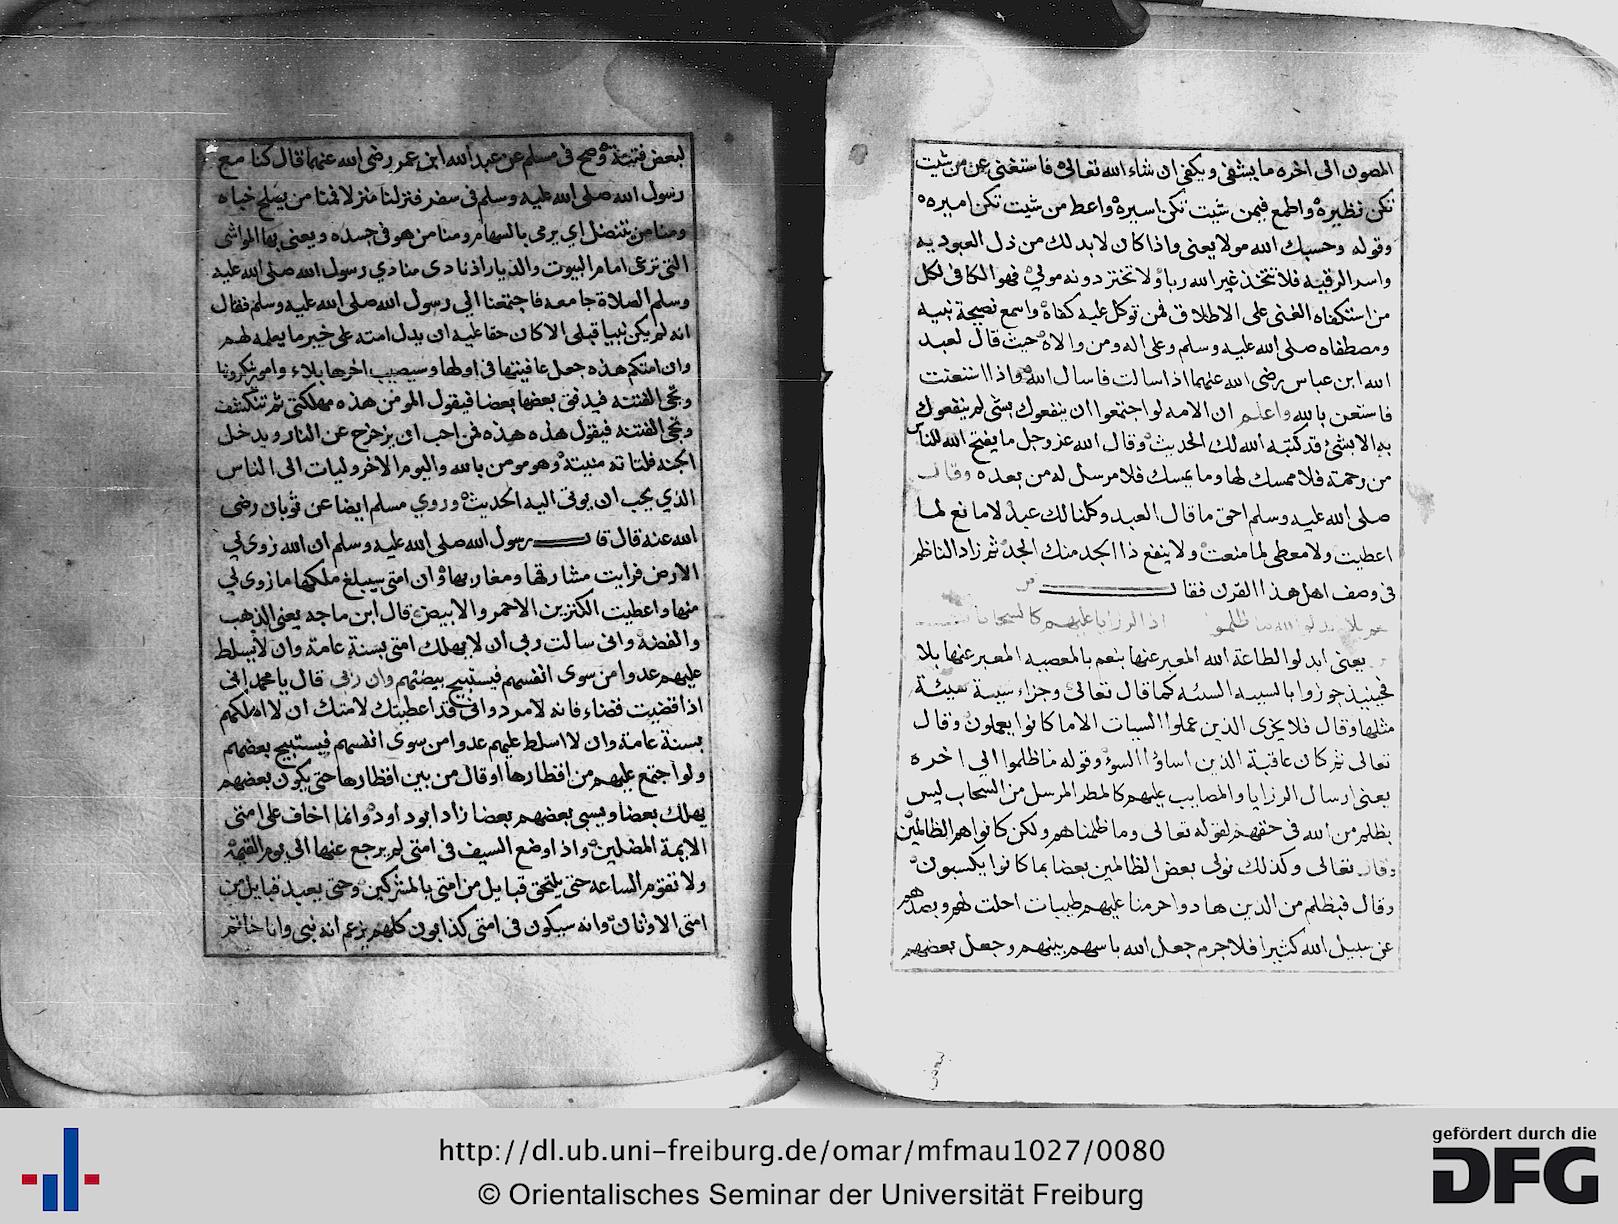 المصون الى اخره ما يشفى ويكفى ان شاء الله تعالى فاستغنى عن من شيت
تكن نظيره واطمع فيمن شيت تكن اسيره واعط من شيت تكن اميره
وقوله وحسبك الله مولا يعنى واذا كان لا بد لك من ذل العبوديه
واسر الرقيه فلا تتخذ غير الله ربا ولا تختر دونه مولى فهو الكافى لكل
من استكفاه الغنى على الاطلاق فمن توكل عليه كفاه واسمع نصيحة نبيه
ومصطفاه صلى الله عليه وسلم وعلى اله ومن والاه حيث قال لعبد
الله ابن عباس رضى الله عنهما اذا سالت فاسال الله واذا استعنت
فاستعن بالله واعلم ان الامه لو اجتمعوا ان ينفعوك بشى لم ينفعوك
به الا بشئ قد كتبه الله لك الحديث وقال الله عز وجل ما يفتح الله للناس
من رحمة فلا ممسك لها وما يمسك فلا مرسل له من بعده وقال
صلى الله عليه وسلم احق ما قال العبد وكلنا لك عبد لا مانع لما
اعطيت ولا معطى لما منعت ولا ينفع ذا الجد منك الجد ثم زاد الناظم
فى وصف اهل هذا القرن فقال
اذا الرزايا عليهم كالسحاب
يعنى ابدلوا لطاعة الله المعبر عنها بنعم بالمعصيه المعبر عنها بلا
فحينيذ جوزوا بالسييه السيئه كما قال تعالى وجزاء سيية سيئة
مثلها وقال فلا يجزى الذين عملوا السيات الا ما كانوا يعملون وقال
تعالى ثم كان عاقبة الذين اساؤا السوء وقوله ما ظلموا الى اخره
يعنى ارسال الرزايا والمصايب عليهم كالمطر المرسل من السحاب ليس
بظلم من الله فى حقهم لقوله تعالى وما ظلمناهم ولكن كانوا هم الظالمين
وقال تعالى وكذلك نولى بعض الظالمين بعضا بما كانوا يكسبون
وقال فبظلم من الذين هادوا حرمنا عليهم طيبات احلت لهم وبصدهم
عن سبيل الله كثيرا فلا جرم جعل الله باسهم بينهم وجعل بعضهم
لبعض
لبعض فتنة وصح فى مسلم عن عبد الله ابن عمر رضى الله عنهما قال كنا مع
رسول الله صلى الله عليه وسلم فى سفر فنزلنا منزلا فمنا من يصلح خباه
ومنا من ينتضل اى يرمى بالسهام ومنا من هو فى جسده ويعنى بها المواشى
التى ترعى امام البيوت والديار اذ نادى منادي رسول الله صلى الله عليه
وسلم الصلاة جامعه فاجتمعنا الى رسول الله صلى الله عليه وسلم فقال
انه لم يكن نبيا قبلى الا كان حقا عليه ان يدل امته على خير ما يعلمه لهم
وان امتكم هذه جعل عافيتها فى اولها وسيصيب اخرها بلاء وامور تنكرونها
وتجى الفتنه فيدفق بعضها بعضا فيقول المومن هذه مهلكتى ثم تنكشف
وتجى الفتنه فيقول هذه هذه فمن احب ان يزحزح عن النار ويدخل
الجنه فلتاته منيته وهو مومن بالله واليوم الاخر وليات الى الناس
الذي يحب ان يوتى اليه الحديث وروي مسلم ايضا عن ثوبان رضى
الله عنه قال قال رسول الله صلى الله عليه وسلم ان الله زوى لى
الارض فرايت مشارقها ومغاربها وان امتى سيبلغ ملكها ما زوى لى
منها واعطيت الكنزين الاحمر والابيض قال ابن ماجه يعنى الذهب
والفضة وانى سالت ربى ان لا يهلك امتى بسنة عامة وان لا يسلط
عليهم عدوا من سوى انفسهم فيستبيح بيضتهم وان ربى قال يا محمد انى
اذا قضيت قضاء فانه لا مرد وانى قد اعطيتك لامتك ان لا اهلكهم
بسنة عامة وان لا اسلط عليهم عدوا من سوى انفسهم فيستبيح بعضهم
ولو اجتمع عليهم من اقطارها او قال من بين اقطارها حتى يكون بعضهم
يهلك بعضا ويسبى بعضهم بعضا زاد ابو داود وانما اخاف على امتى
الايمة المضلين واذا وضع السيف فى امتى لم يرجع عنها الى يوم القيمة
ولا تقوم الساعه حتى يلتحق قبايل من امتى بالمشركين وحتى يعبد قبايل من
امتى الاوثان وانه سيكون فى امتى كذابون كلهم يزعم انه نبى وانا خاتم
http://dl.ub.uni-freiburg.de/omar/mfmau1027/0080
© Orientalisches Seminar der Universität Freiburg
gefördert durch die
DFG